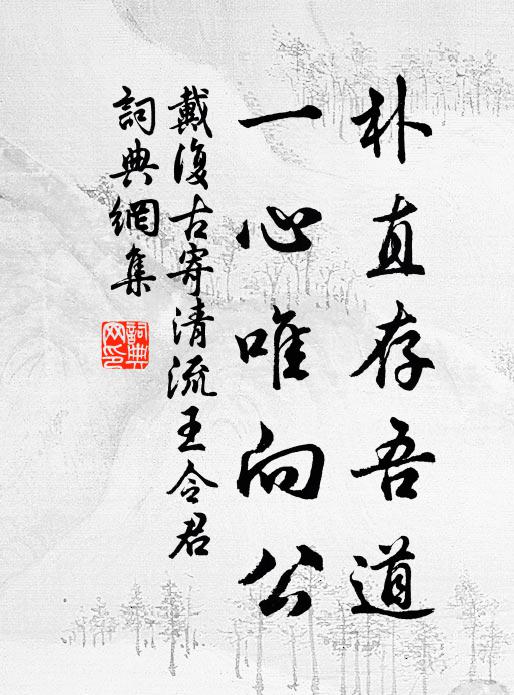 朴直存吾道
一心唯向公
戴復古寄清流王令君
詞典網集
詞典网印